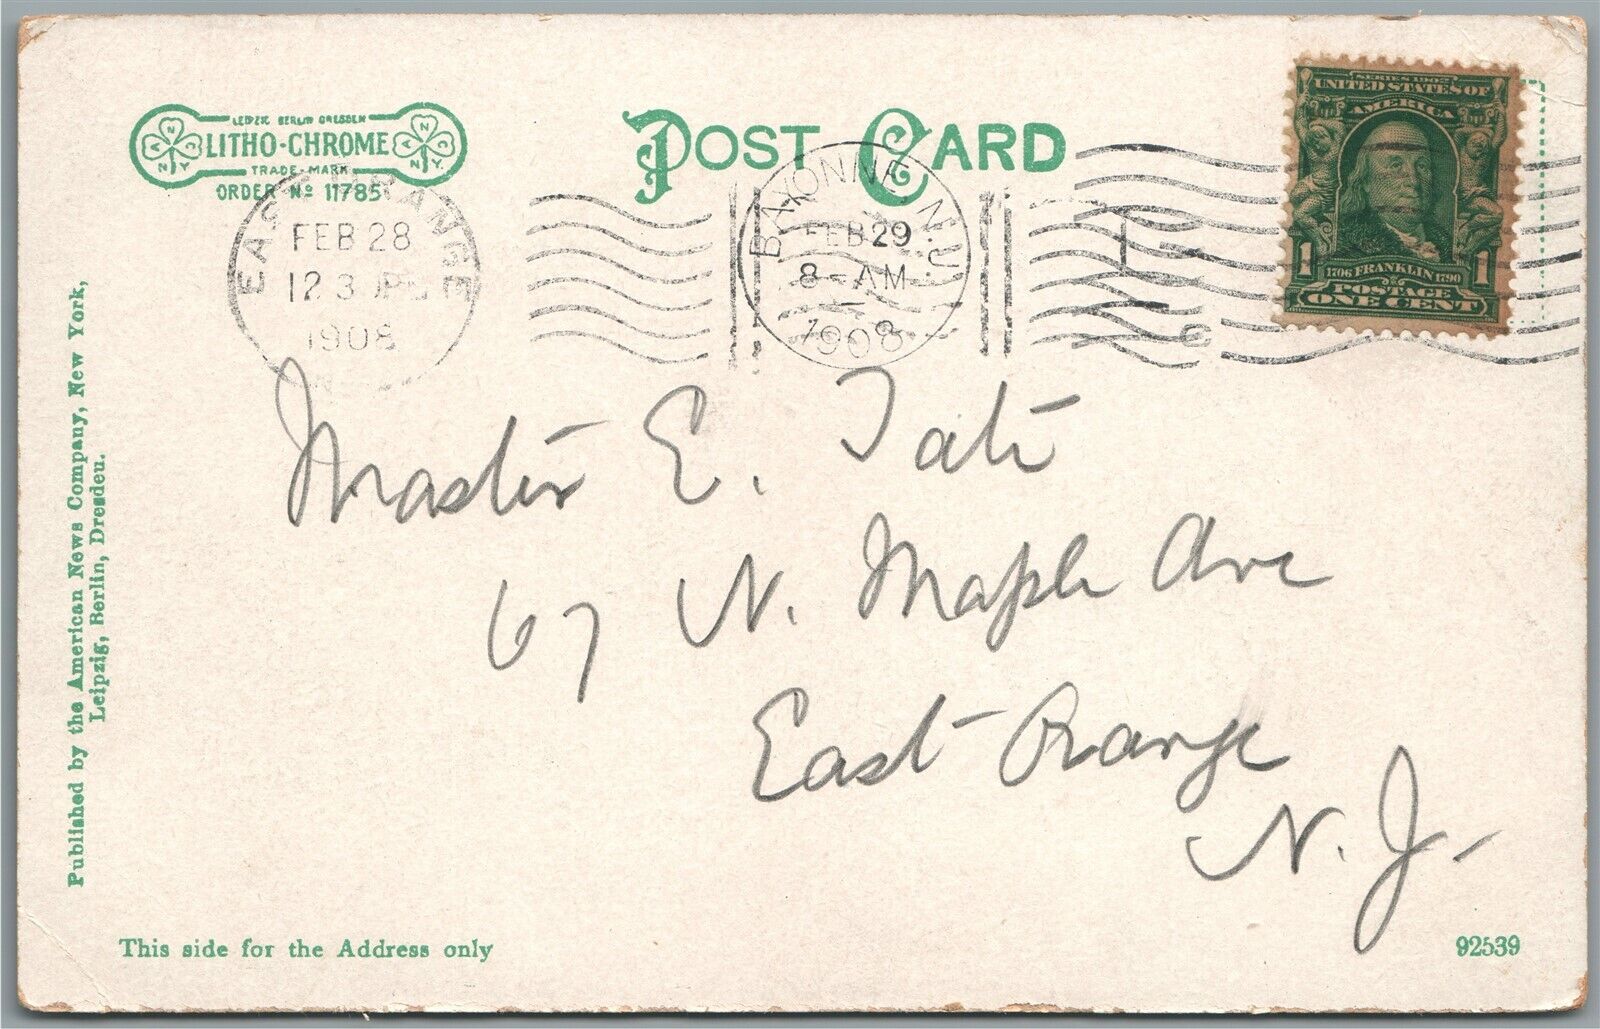 LEIPZIG BERLIN DRESDEN
LITHO-CHROME
TRADE-MARK
ORDER No 11785
POST CARD
EAST ORANGE
FEB 28
12 30 P
1908
N
BAYONNE N.J.
FEB 29
8-AM
1908
SERIES 1902
UNITED STATES OF
AMERICA
1 1
1706 FRANKLIN 1790
POSTAGE
ONE CENT
Master E. Tate
67 N. Maple Ave
East Orange
N. J.
Published by the American News Company, New York,
Leipzig, Berlin, Dresden.
This side for the Address only
92539